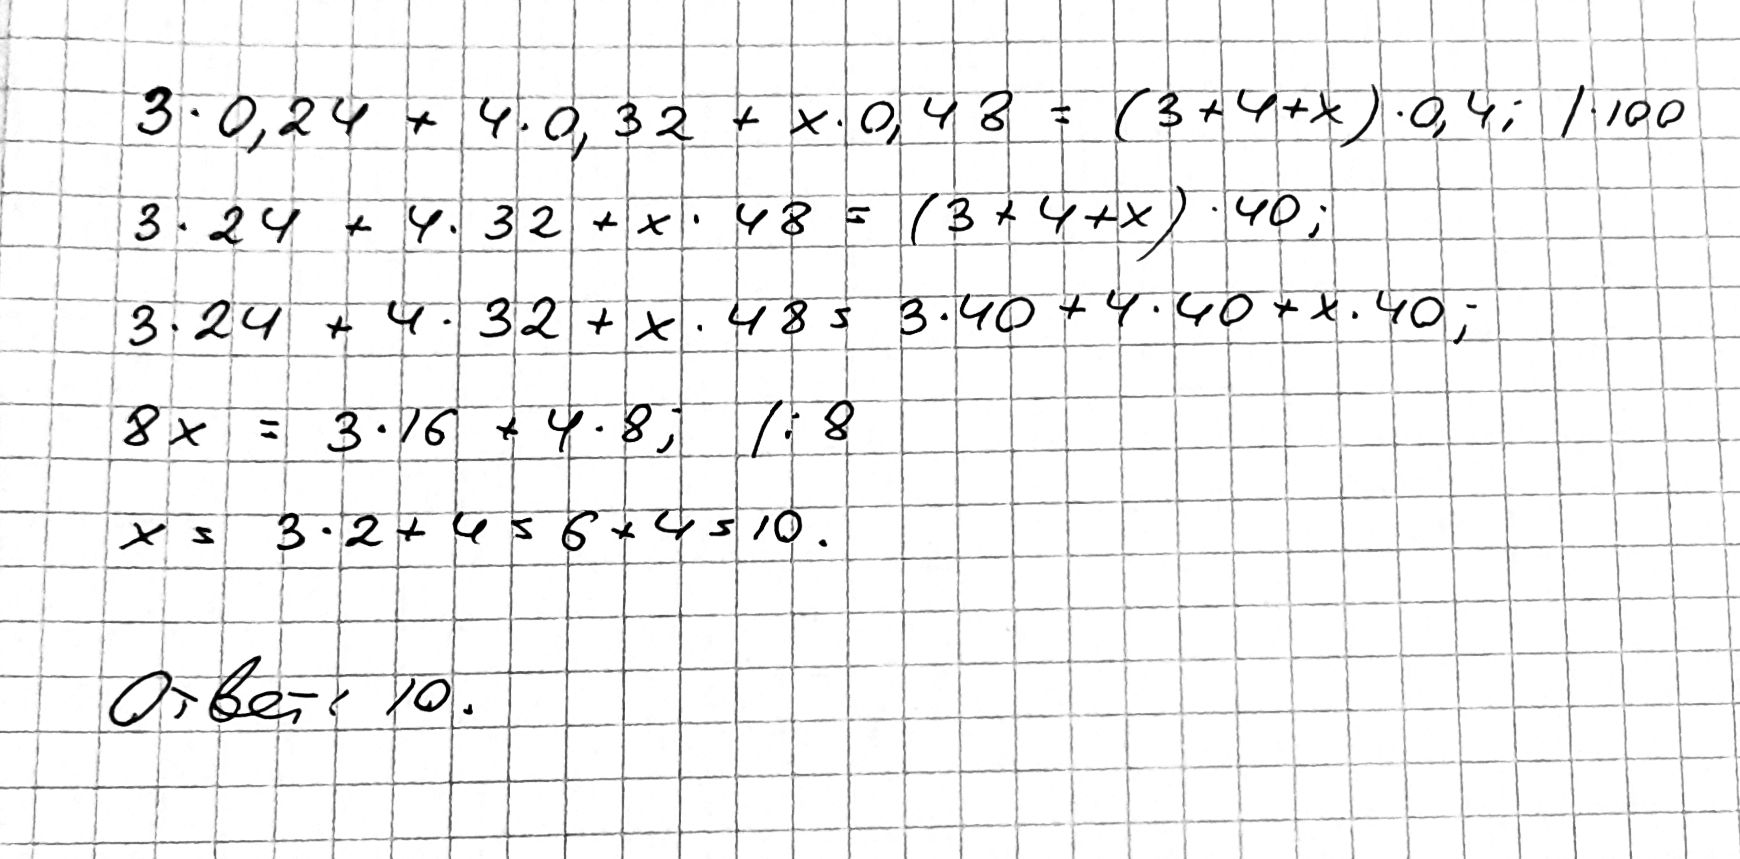 3·0,24 + 4·0,32 + x·0,48 = (3+4+x)·0,4; /·100
3·24 + 4·32 + x·48 = (3+4+x)·40;
3·24 + 4·32 + x·48 = 3·40+4·40+x·40;
8x = 3·16 + 4·8; /:8
x = 3·2+4=6+4=10.
Ответ: 10.